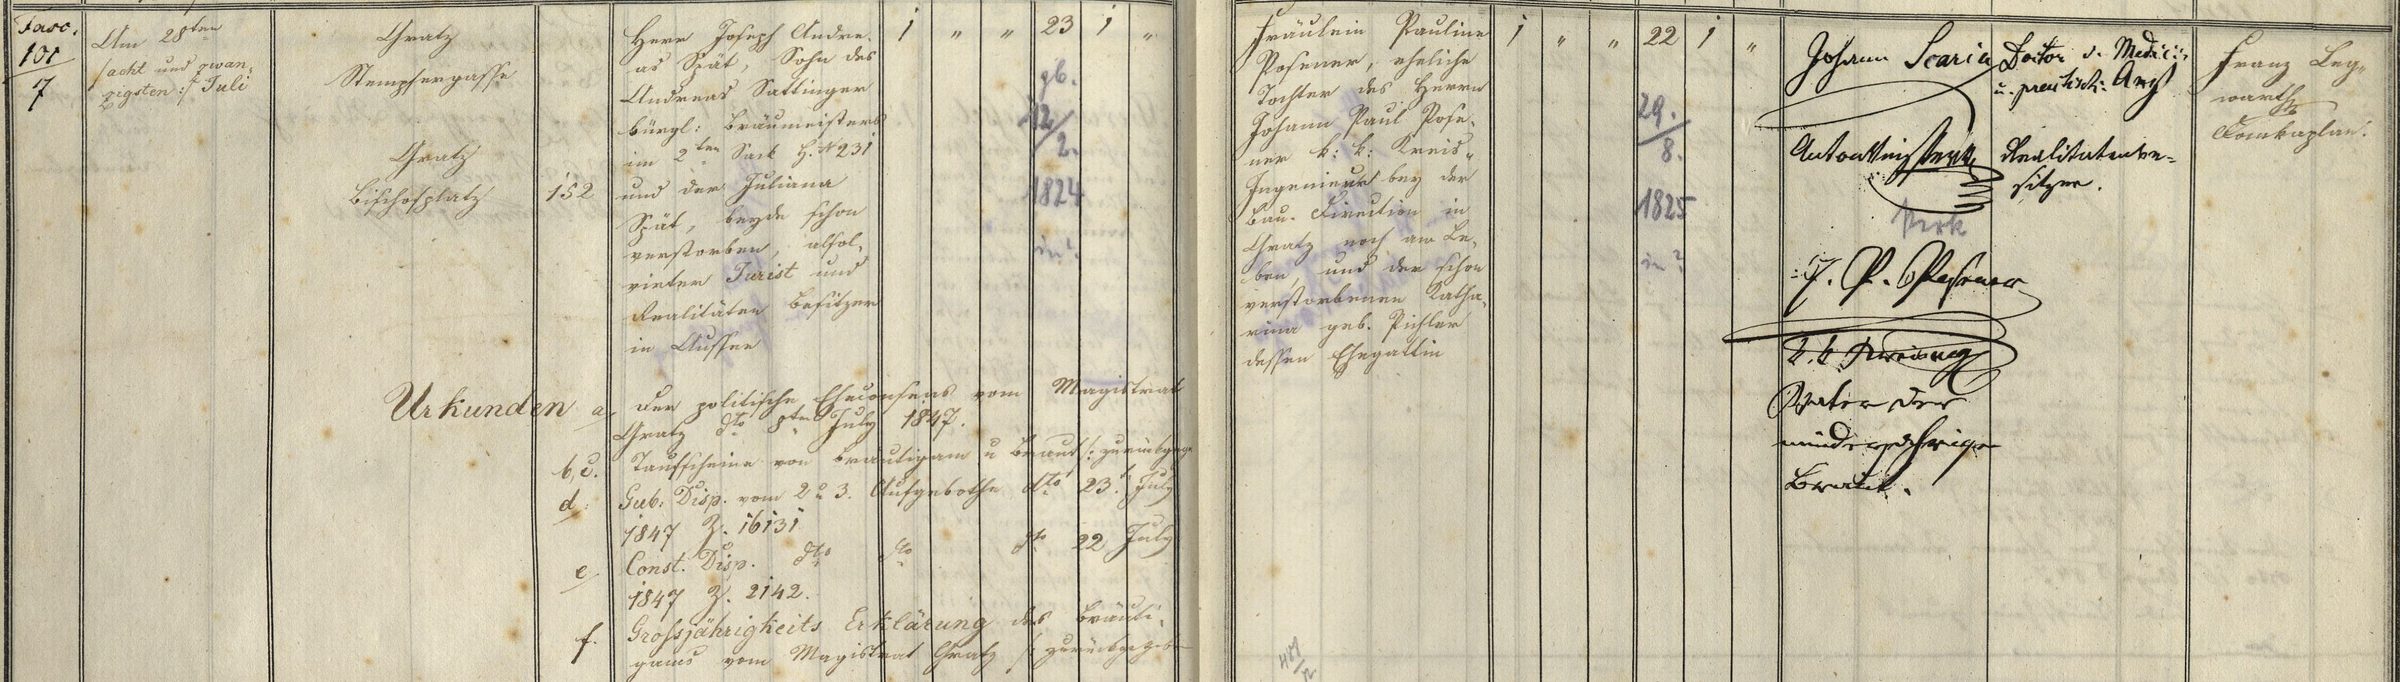 Fasc.
101
7
Am 28ten
/acht und zwan-
zigsten :/ Juli
Gratz
Stempfergasse
Gratz
Bischofplatz
152
Herr Joseph Andre-
as Spät, Sohn des
Andreas Sattinger
bürgl: Bräumeisters
im 2ten Sack H. N 231
und der Juliana
Spät, beyde schon
verstorben, absol-
virter Jurist und
Realitäten Besitzer
in Aussee
1 " " 23 1 "
gb.
12/2.
1824
in?
Urkunden a, der politische Eheconsens vom Magistrat
Gratz dto 8ten July 1847.
b, c. Taufscheine von Bräutigam u Braut /: zurückgeg.
d. Gub: Disp. vom 2 u 3. Aufgebothe dto 23. July
1847 Z. 16131
e. Const. Disp. dto dto dto 22 July
1847 Z. 2142.
f. Grossjährigkeits Erklärung des Bräuti-
gams vom Magistrat Gratz /: zurückgegeben
Fräulein Pauline
Posener, eheliche
Tochter des Herrn
Johann Paul Pose-
ner k: k: Kreis-
Ingenieur bey der
Bau-Direction in
Gratz noch am Le-
ben, und der schon
verstorbenen Katha-
rina geb. Pichler
dessen Ehegattin
1 " " 22 1 "
29./8.
1825
in?
Johann Scaria Doctor d. Medicin
u. praktisch. Arzt
Anton Realitätenbe-
sitzer.
J. P. Posener
k. k.
Vater der
minderjährigen
Braut.
Franz Leg-
warth
Domkaplan.